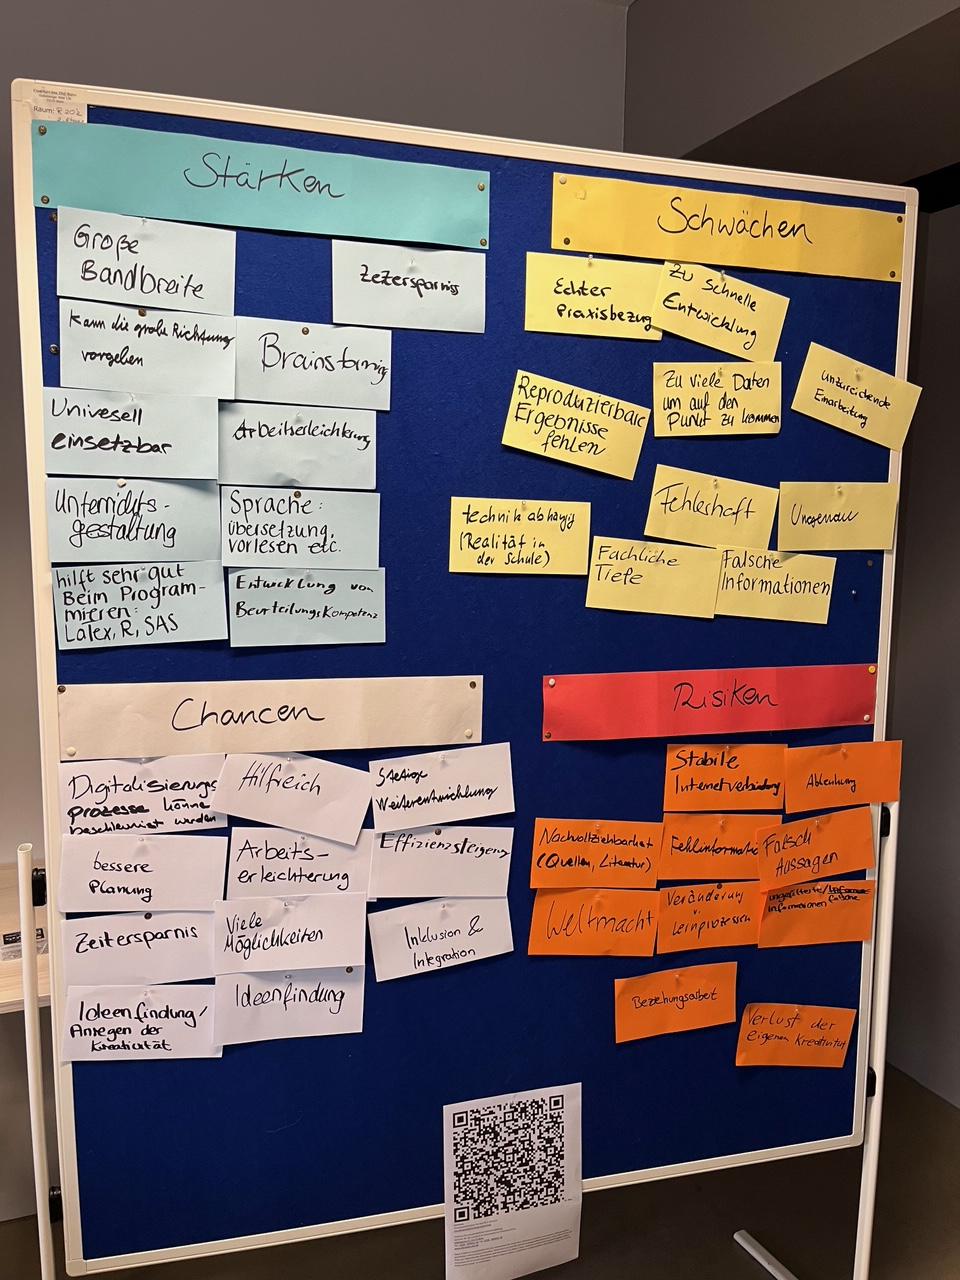 Raum: R 202
Stärken
Große
Bandbreite
Zeitersparniss
Kann die große Richtung
vorgeben
Brainstorming
Univesell
einsetzbar
Arbeitserleichterung
Unterrichts-
gestaltung
Sprache:
übersetzung,
vorlesen etc.
hilft sehr gut
Beim Program-
mieren:
Latex, R, SAS
Entwicklung von
Beurteilungskompetenz
Schwächen
Echter
Praxisbezug
Zu schnelle
Entwicklung
Reproduzierbare
Ergebnisse
fehlen
Zu viele Daten
um auf den
Punkt zu kommen
Unzureichende
Einarbeitung
technik abhängig
(Realität in
der Schule)
Fehlerhaft
Ungenau
Fachliche
Tiefe
Falsche
Informationen
Chancen
Digitalisierungs
prozesse können
beschleunigt werden
Hilfreich
Stetige
Weiterentwicklung
bessere
Planung
Arbeits-
erleichterung
Effizienzsteigerung
Zeitersparnis
Viele
Möglichkeiten
Inklusion &
Integration
Ideenfindung/
Anregen der
Kreativität
Ideenfindung
Risiken
Stabile
Internetverbindung
Ablenkung
Nachvollziehbarkeit
(Quellen, Literatur)
Fehlinformatio
Falsch
Aussagen
Weltmacht
Veränderung
v.
Lernprozessen
ungefilterte/
Informationen falsche
Beziehungsarbeit
Verlust der
eigenen Kreativität